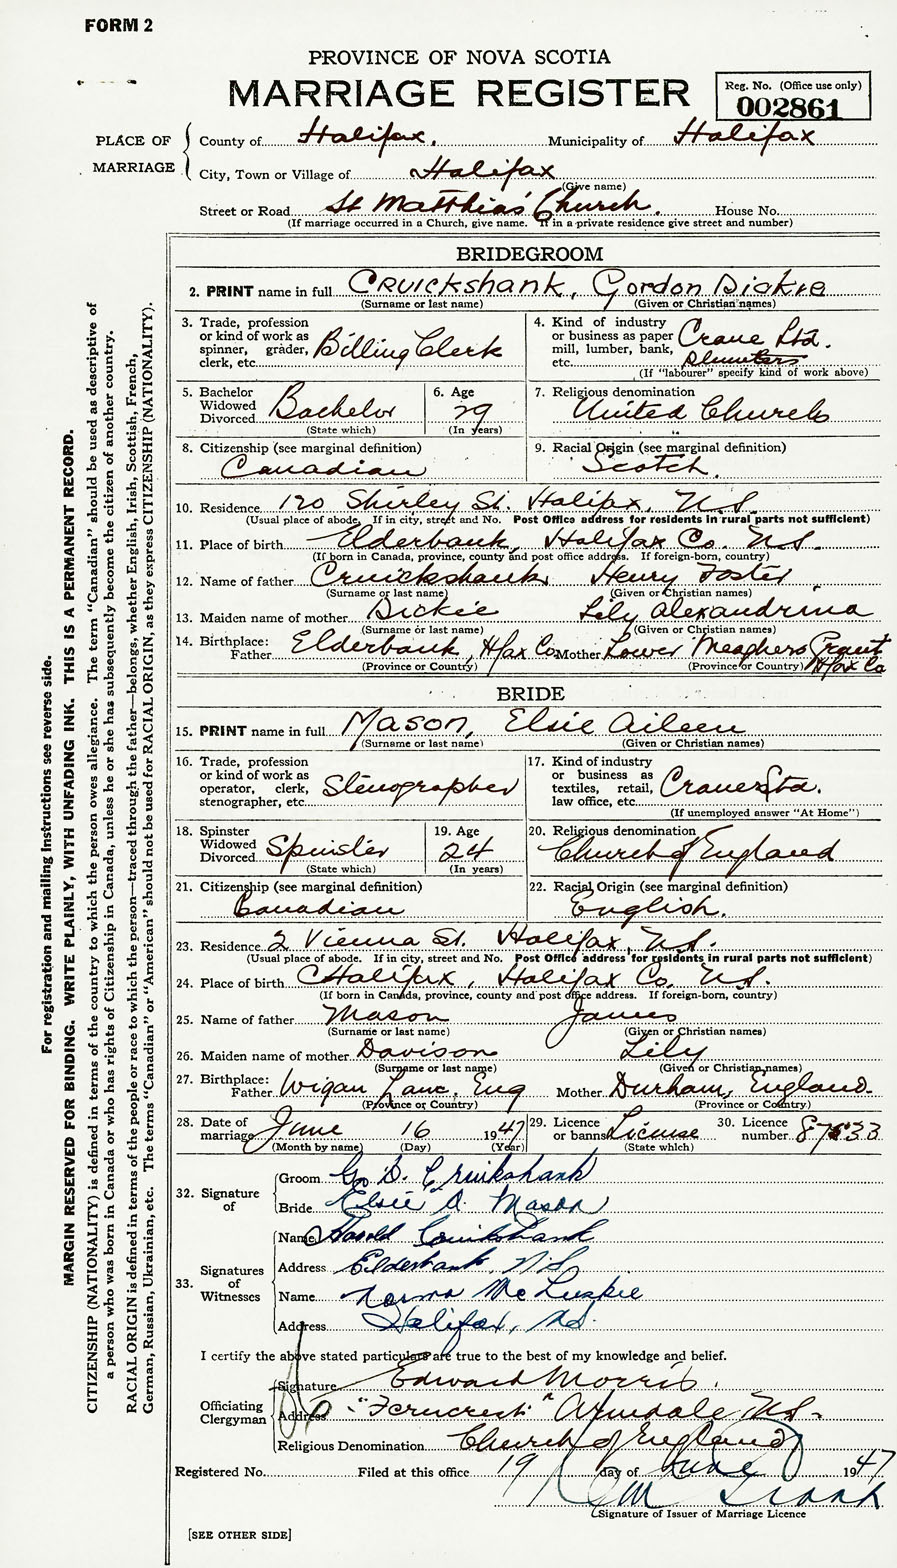 FORM 2
PROVINCE OF NOVA SCOTIA
MARRIAGE REGISTER
Reg. No. (Office use only)
002861
PLACE OF MARRIAGE
County of Halifax. Municipality of Halifax
City, Town or Village of Halifax
(Give name)
Street or Road St Matthias' Church. House No.
(If marriage occurred in a Church, give name. If in a private residence give street and number)
BRIDEGROOM
2. PRINT name in full CRUICKSHANK, Gordon Dickie
(Surname or last name) (Given or Christian names)
3. Trade, profession or kind of work as spinner, grader, clerk, etc. Billing Clerk
4. Kind of industry or business as paper mill, lumber, bank, etc. Crane Ltd.
(If "labourer" specify kind of work above)
5. Bachelor Widowed Divorced Bachelor
(State which)
6. Age 29
(In years)
7. Religious denomination United Church
8. Citizenship (see marginal definition) Canadian
9. Racial Origin (see marginal definition) Scotch.
10. Residence 120 Shirley St. Halifax, N.S.
(Usual place of abode. If in city, street and No. Post Office address for residents in rural parts not sufficient)
11. Place of birth Elderbank, Halifax Co. N.S.
(If born in Canada, province, county and post office address. If foreign-born, country)
12. Name of father Cruickshank, Henry Foster
(Surname or last name) (Given or Christian names)
13. Maiden name of mother Dickie Lily Alexandrina
(Surname or last name) (Given or Christian names)
14. Birthplace: Father Elderbank, Hfax Co Mother Lower Meaghers Grant Hfax Co
(Province or Country) (Province or Country)
BRIDE
15. PRINT name in full Mason, Elsie Aileen
(Surname or last name) (Given or Christian names)
16. Trade, profession or kind of work as operator, clerk, stenographer, etc. Stenographer
17. Kind of industry or business as textiles, retail, law office, etc. Crane Ltd.
(If unemployed answer "At Home")
18. Spinster Widowed Divorced Spinster
(State which)
19. Age 24
(In years)
20. Religious denomination Church of England
21. Citizenship (see marginal definition) Canadian
22. Racial Origin (see marginal definition) English.
23. Residence 2 Vienna St. Halifax, N.S.
(Usual place of abode. If in city, street and No. Post Office address for residents in rural parts not sufficient)
24. Place of birth Halifax, Halifax Co. N.S.
(If born in Canada, province, county and post office address. If foreign-born, country)
25. Name of father Mason James
(Surname or last name) (Given or Christian names)
26. Maiden name of mother Davison Lily
(Surname or last name) (Given or Christian names)
27. Birthplace: Father Wigan Lanc, Eng Mother Durham, England.
(Province or Country) (Province or Country)
28. Date of marriage June 16 1947
(Month by name) (Day) (Year)
29. Licence or banns License
(State which)
30. Licence number
32. Signature of
Groom G. D. Cruikshank
Bride Elsie A. Mason
33. Signatures of Witnesses
Name Harold Cruikshank
Address Elderbank, N.S.
Name Norma McLuskie
Address Halifax, N.S.
I certify the above stated particulars are true to the best of my knowledge and belief.
Officiating Clergyman
Signature Edward Morris.
Address "Ferncrest" Armdale, N.S.
Religious Denomination Church of England
Registered No. Filed at this office 19 day of June 1947
Signature of Issuer of Marriage Licence
[SEE OTHER SIDE]
For registration and mailing instructions see reverse side.
MARGIN RESERVED FOR BINDING. WRITE PLAINLY, WITH UNFADING INK. THIS IS A PERMANENT RECORD.
CITIZENSHIP (NATIONALITY) is defined in terms of the country to which the person owes allegiance. The term "Canadian" should be used as descriptive of
a person who was born in Canada or who has rights of Citizenship in Canada, unless he or she has subsequently become the citizen of another country.
RACIAL ORIGIN is defined in terms of the people or race to which the person—traced through the father—belongs, whether English, Irish, Scottish, French,
German, Russian, Ukrainian, etc. The terms "Canadian" or "American" should not be used for RACIAL ORIGIN, as they express CITIZENSHIP (NATIONALITY).